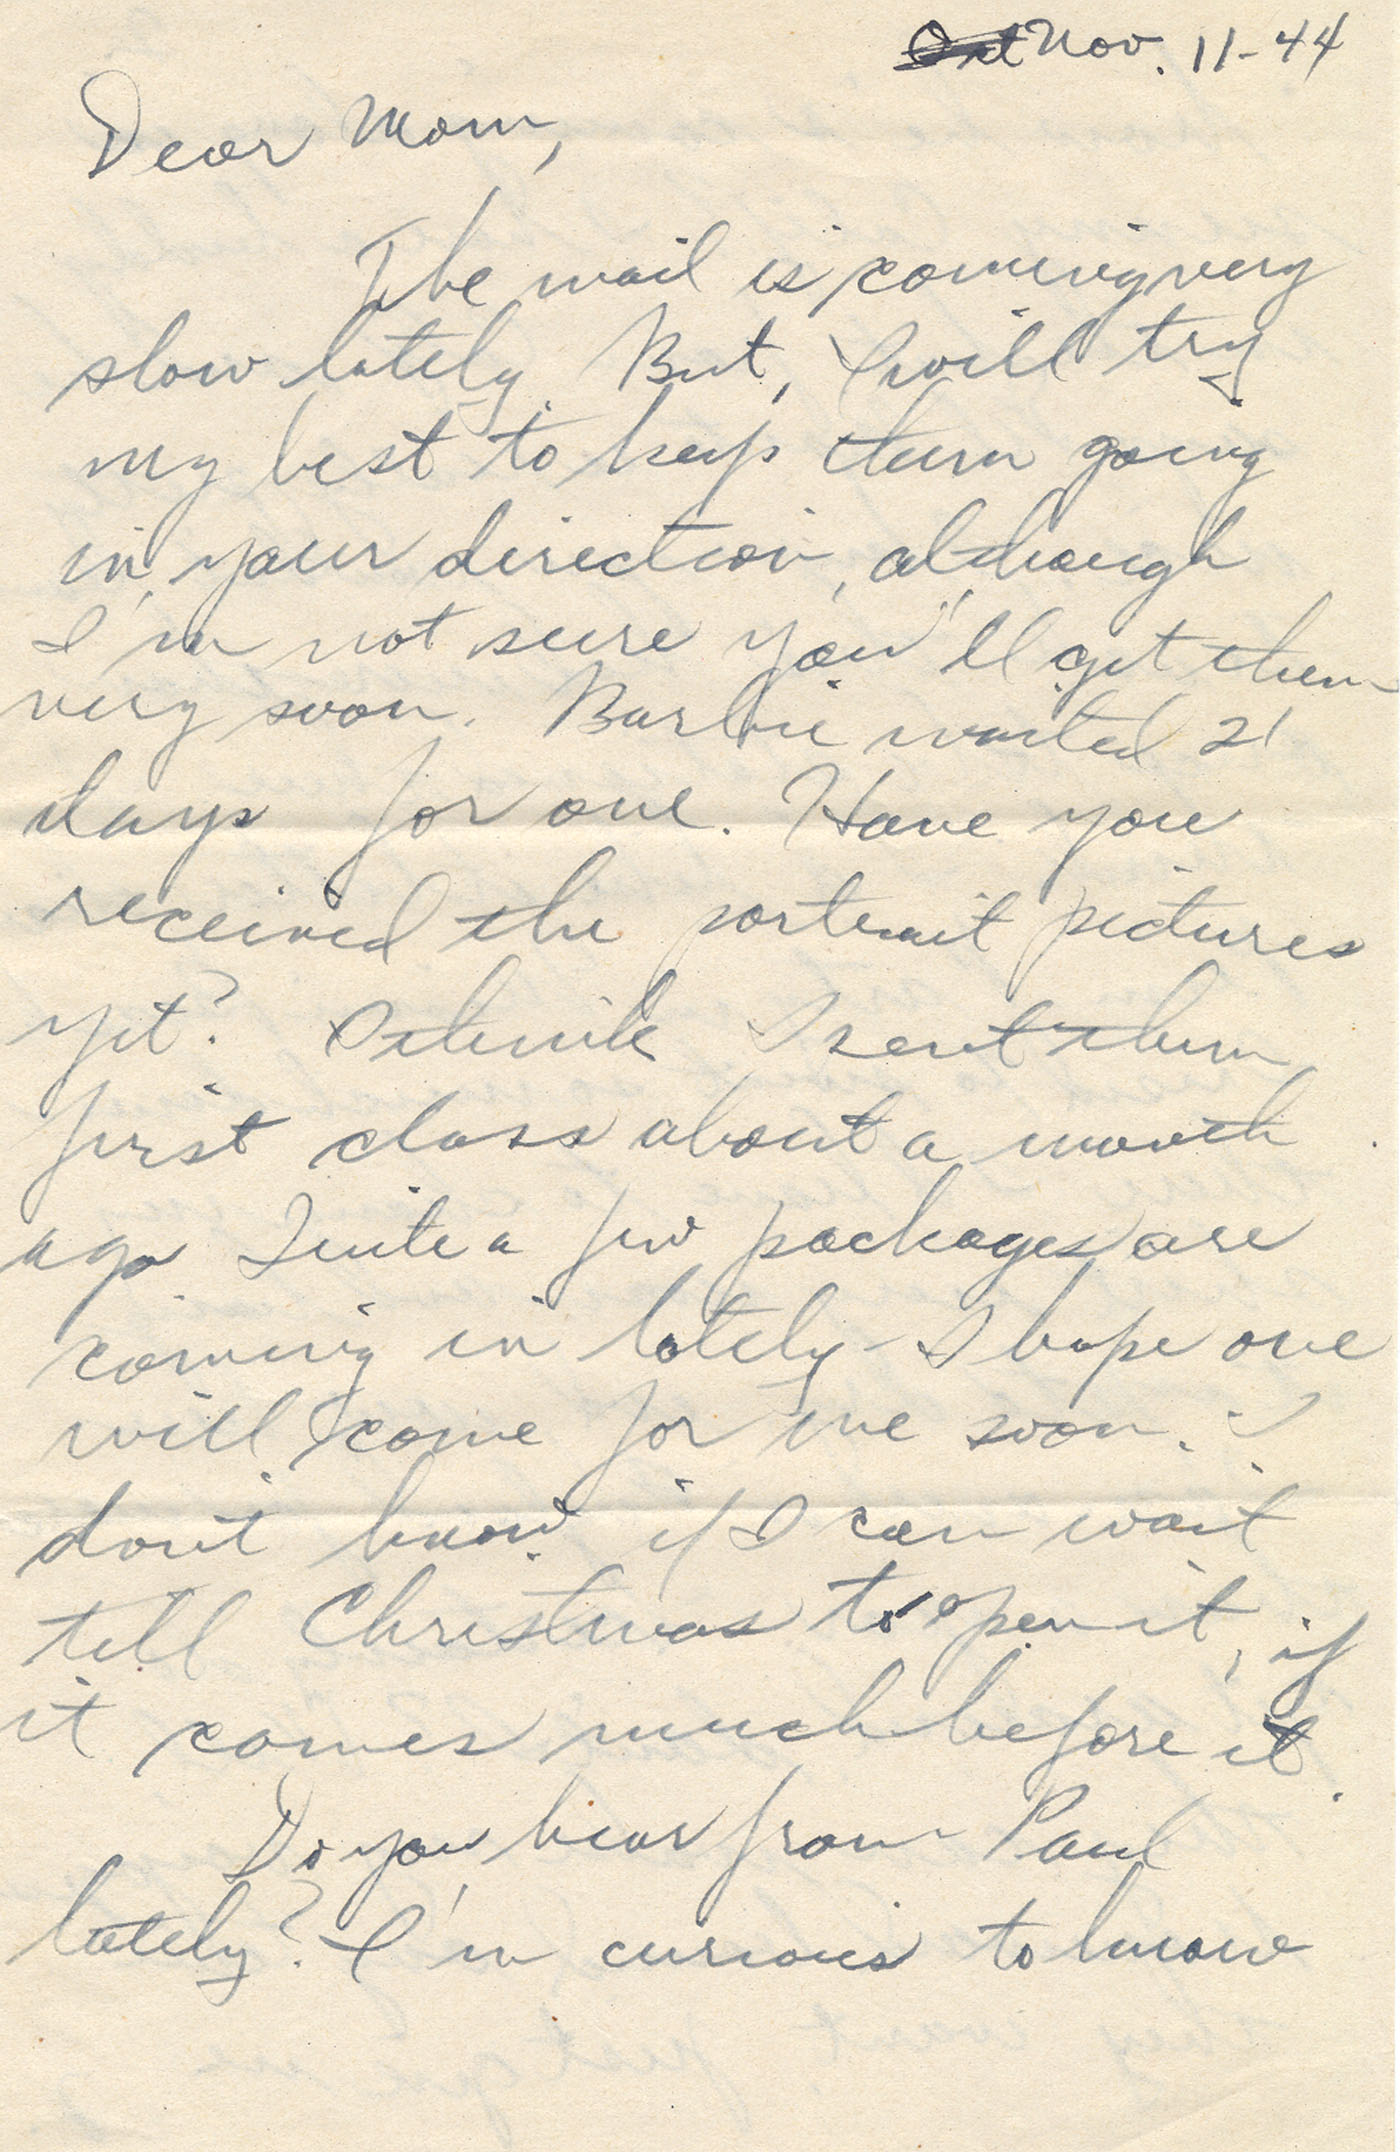 Oct Nov. 11-44
Dear Mom,
The mail is coming very
slow lately. But, I will try
my best to keep them going
in your direction, although
I'm not sure you'll get them
very soon. Barbie waited 21
days for one. Have you
received the portrait pictures
yet? I think I sent them
first class about a month
ago. Quite a few packages are
coming in lately - I hope one
will come for me soon. I
don't know if I can wait
till Christmas to open it, if
it comes much before it.
Do you hear from Paul
lately? I'm curious to know